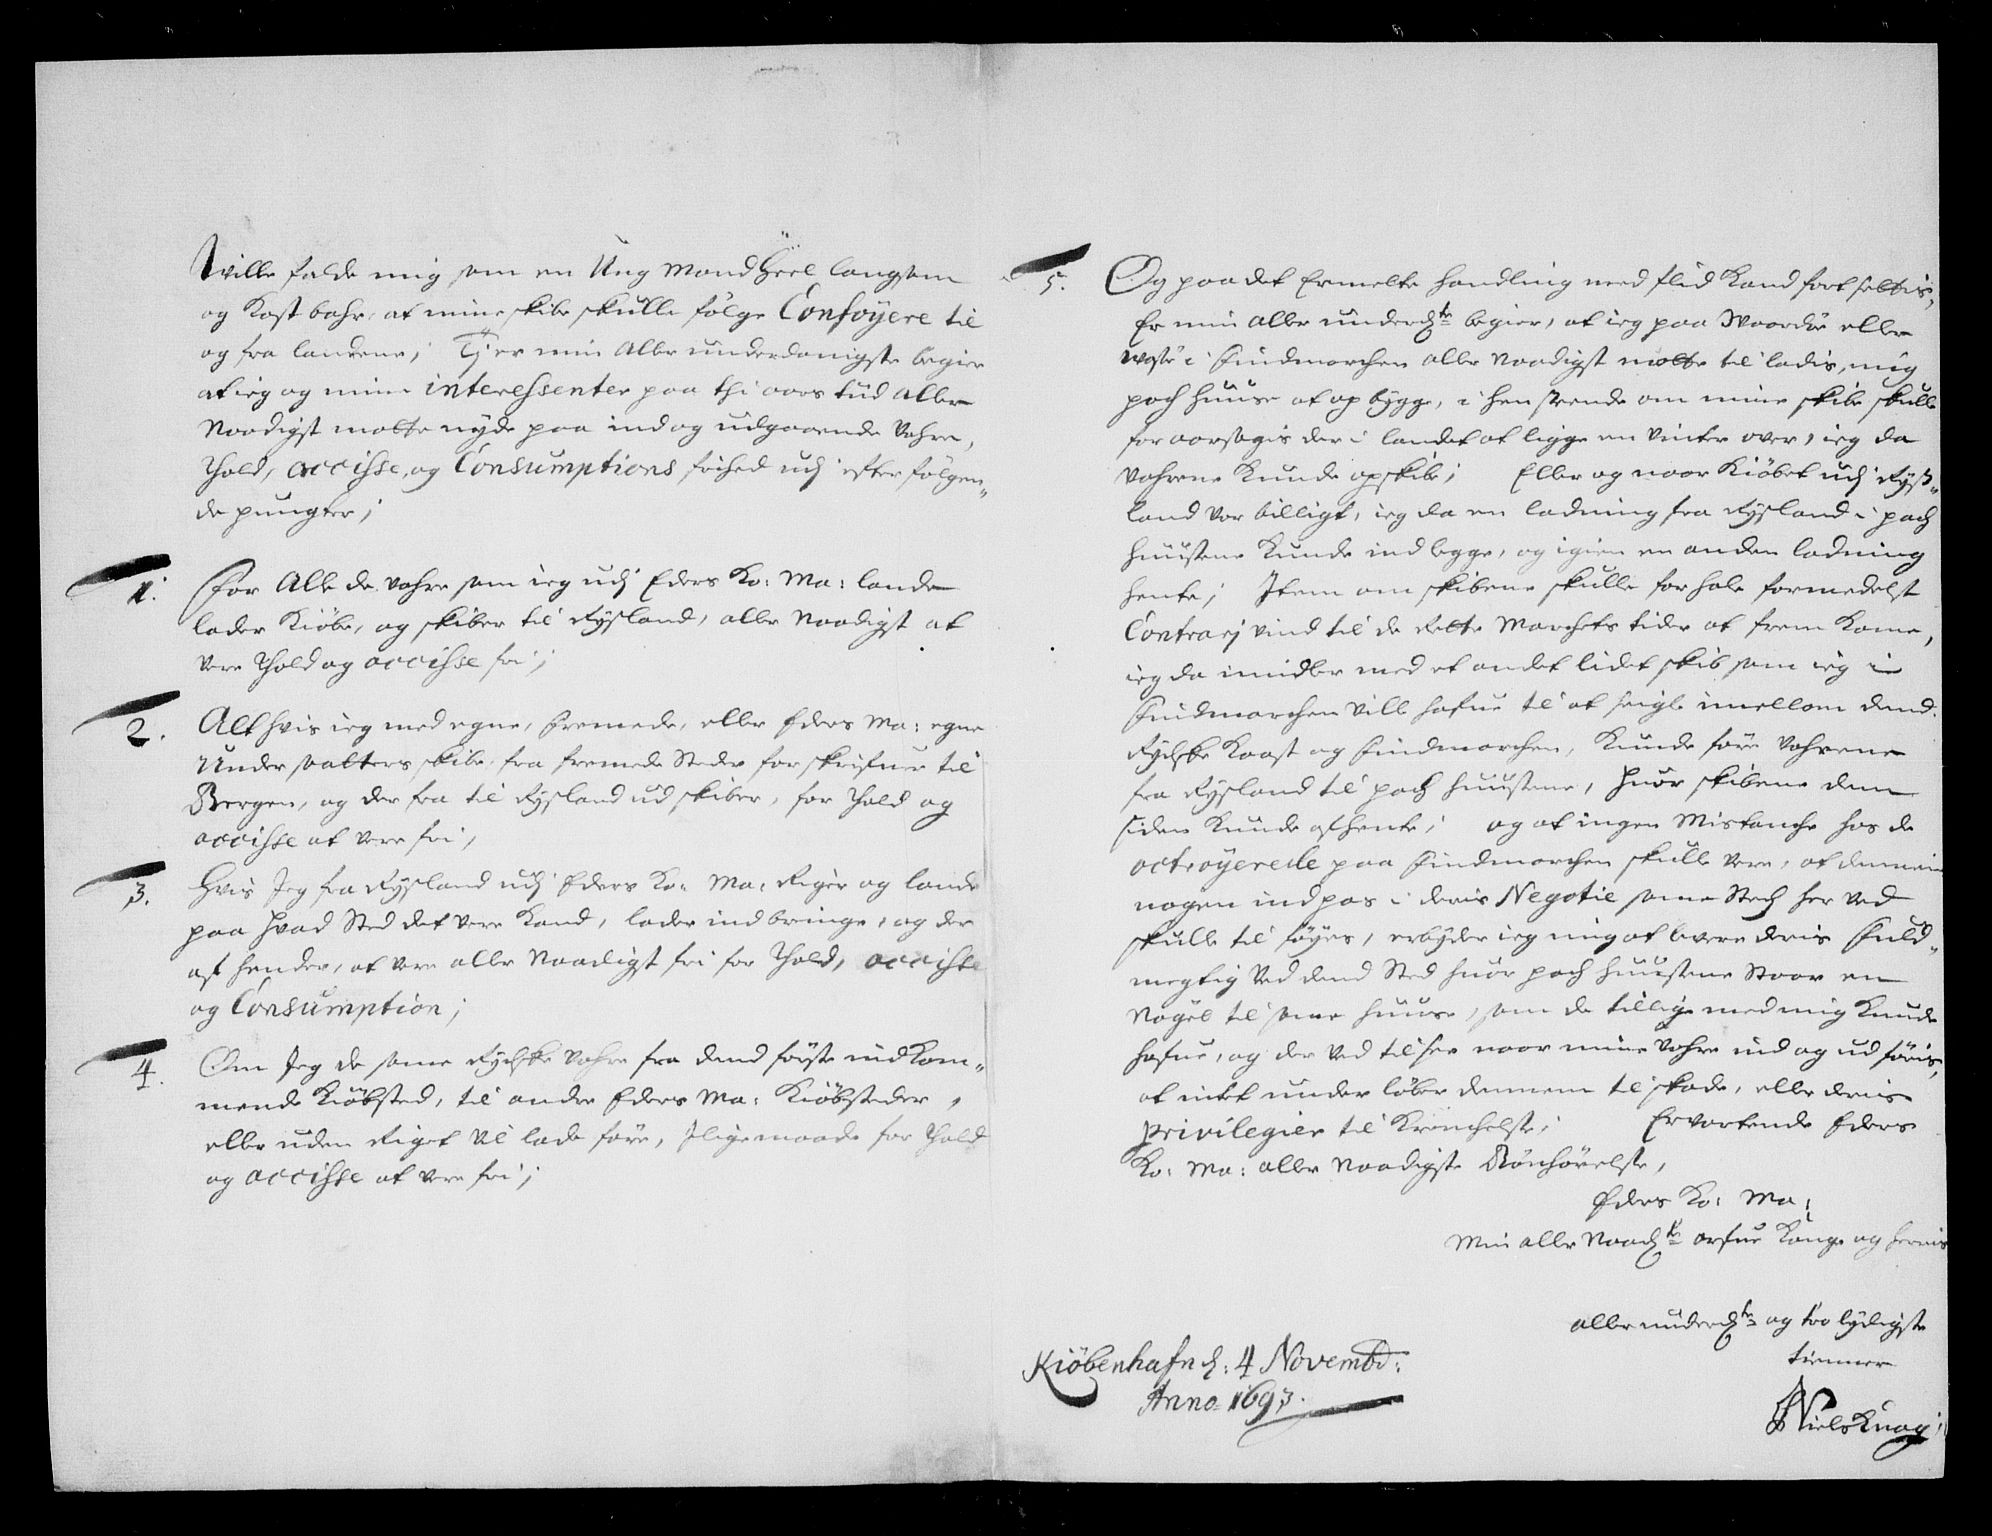 Wille falde mig som en Ung Mand Heel langsom
og Kost bahr, at mine skibe skulle følge Confoyere til
og fra landene; Ti er min Aller underdanigste begier
at ieg og mine interessenter paa thi aars tiid Aller
Naadigst motte nyde paa ind og udgaaende Vahre,
Thold, accisse, og Consumptions frihed udj efter følgen„
de pungter;
1. For Alle de Vahre som ieg udj Eders Ko: Ma: lande
lader Kiöbe, og skiber til Rysland, aller Naadigst at
vere Thold og accisse fri;
2. Alt hvis ieg med egne, fremede, eller Eders Ma: egne
Undersaatters skibe, fra fremede Steder forskrifuer til
Bergen, og der fra til Rysland ud skiber, for Thold og
accisse at vere fri,
3. Hvis Jeg fra Rysland udj Eders Ko: Ma: Riger og lande
paa Hvad Sted det vere Kand, lader ind bringe, og der
af hender, at vere aller Naadigst fri for Thold, accisse
og Consumption;
4. Om Jeg de same Rydske Vahre fra dend første indkom„
mende Kiöbsted, til andre Eders Ma: Kiöbsteder,
eller uden Riget vil lade före, Jligemaade for Thold
og accisse at vere fri;
5. Og paa det Ermelte handling med flid Kand fort settis,
Er min aller underd: ste begier, at ieg paa Waardø eller
wasø i Findmarchen aller Naadigst motte til ladis, mig
pach huuse at op bygge, i hen seende om mine skibe skulle
for aarsagis der i landet at ligge en vinter over, ieg da
Vahrene Kunde opskibe; Eller og naar Kiöbet udj Rys„
land var billigt, ieg da en ladning fra Rysland i pach
huusene Kunde ind legge, og igien en anden ladning
hente; Item om skibene skulle for hale formedelst
Contrarj vind til de Rette Marchets tider at frem Kome,
ieg da imidler med et andet lidet skib som ieg i
Findmarchen vill hafue til at seigle imellom dend
Rydske Kaast og Findmarchen, Kunde före Vahrene
fra Rysland til pach huusene, Huor skibene dem
siden Kunde afhente; og at ingen Mistanche hos de
octroyerede paa Findmarchen skulle vere, at dennem
nogen indpas i deris Negotie same Sted her ved
skulle til föyes, erbyder ieg mig at levere deris Fuld„
megtig ved dend Sted huor pach huusene Staar en
Nögel til same huuse, som de tillige med mig Kunde
hafue, og der ved til see naar mine Vahre ind og ud föris,
at intet under löber dennem til skade, eller deris
privilegier til Krenchelse; Ervartende Eders
Ko: Ma: aller Naadigste Bönhörelse,
Eders Ko: Ma:
Min aller Naad: ste arfue Konge og herris
aller underd: ste og tro lydigste
tienner
Kiöbenhafn d: 4 Novembr:
Anno 1693.
Niels Knag